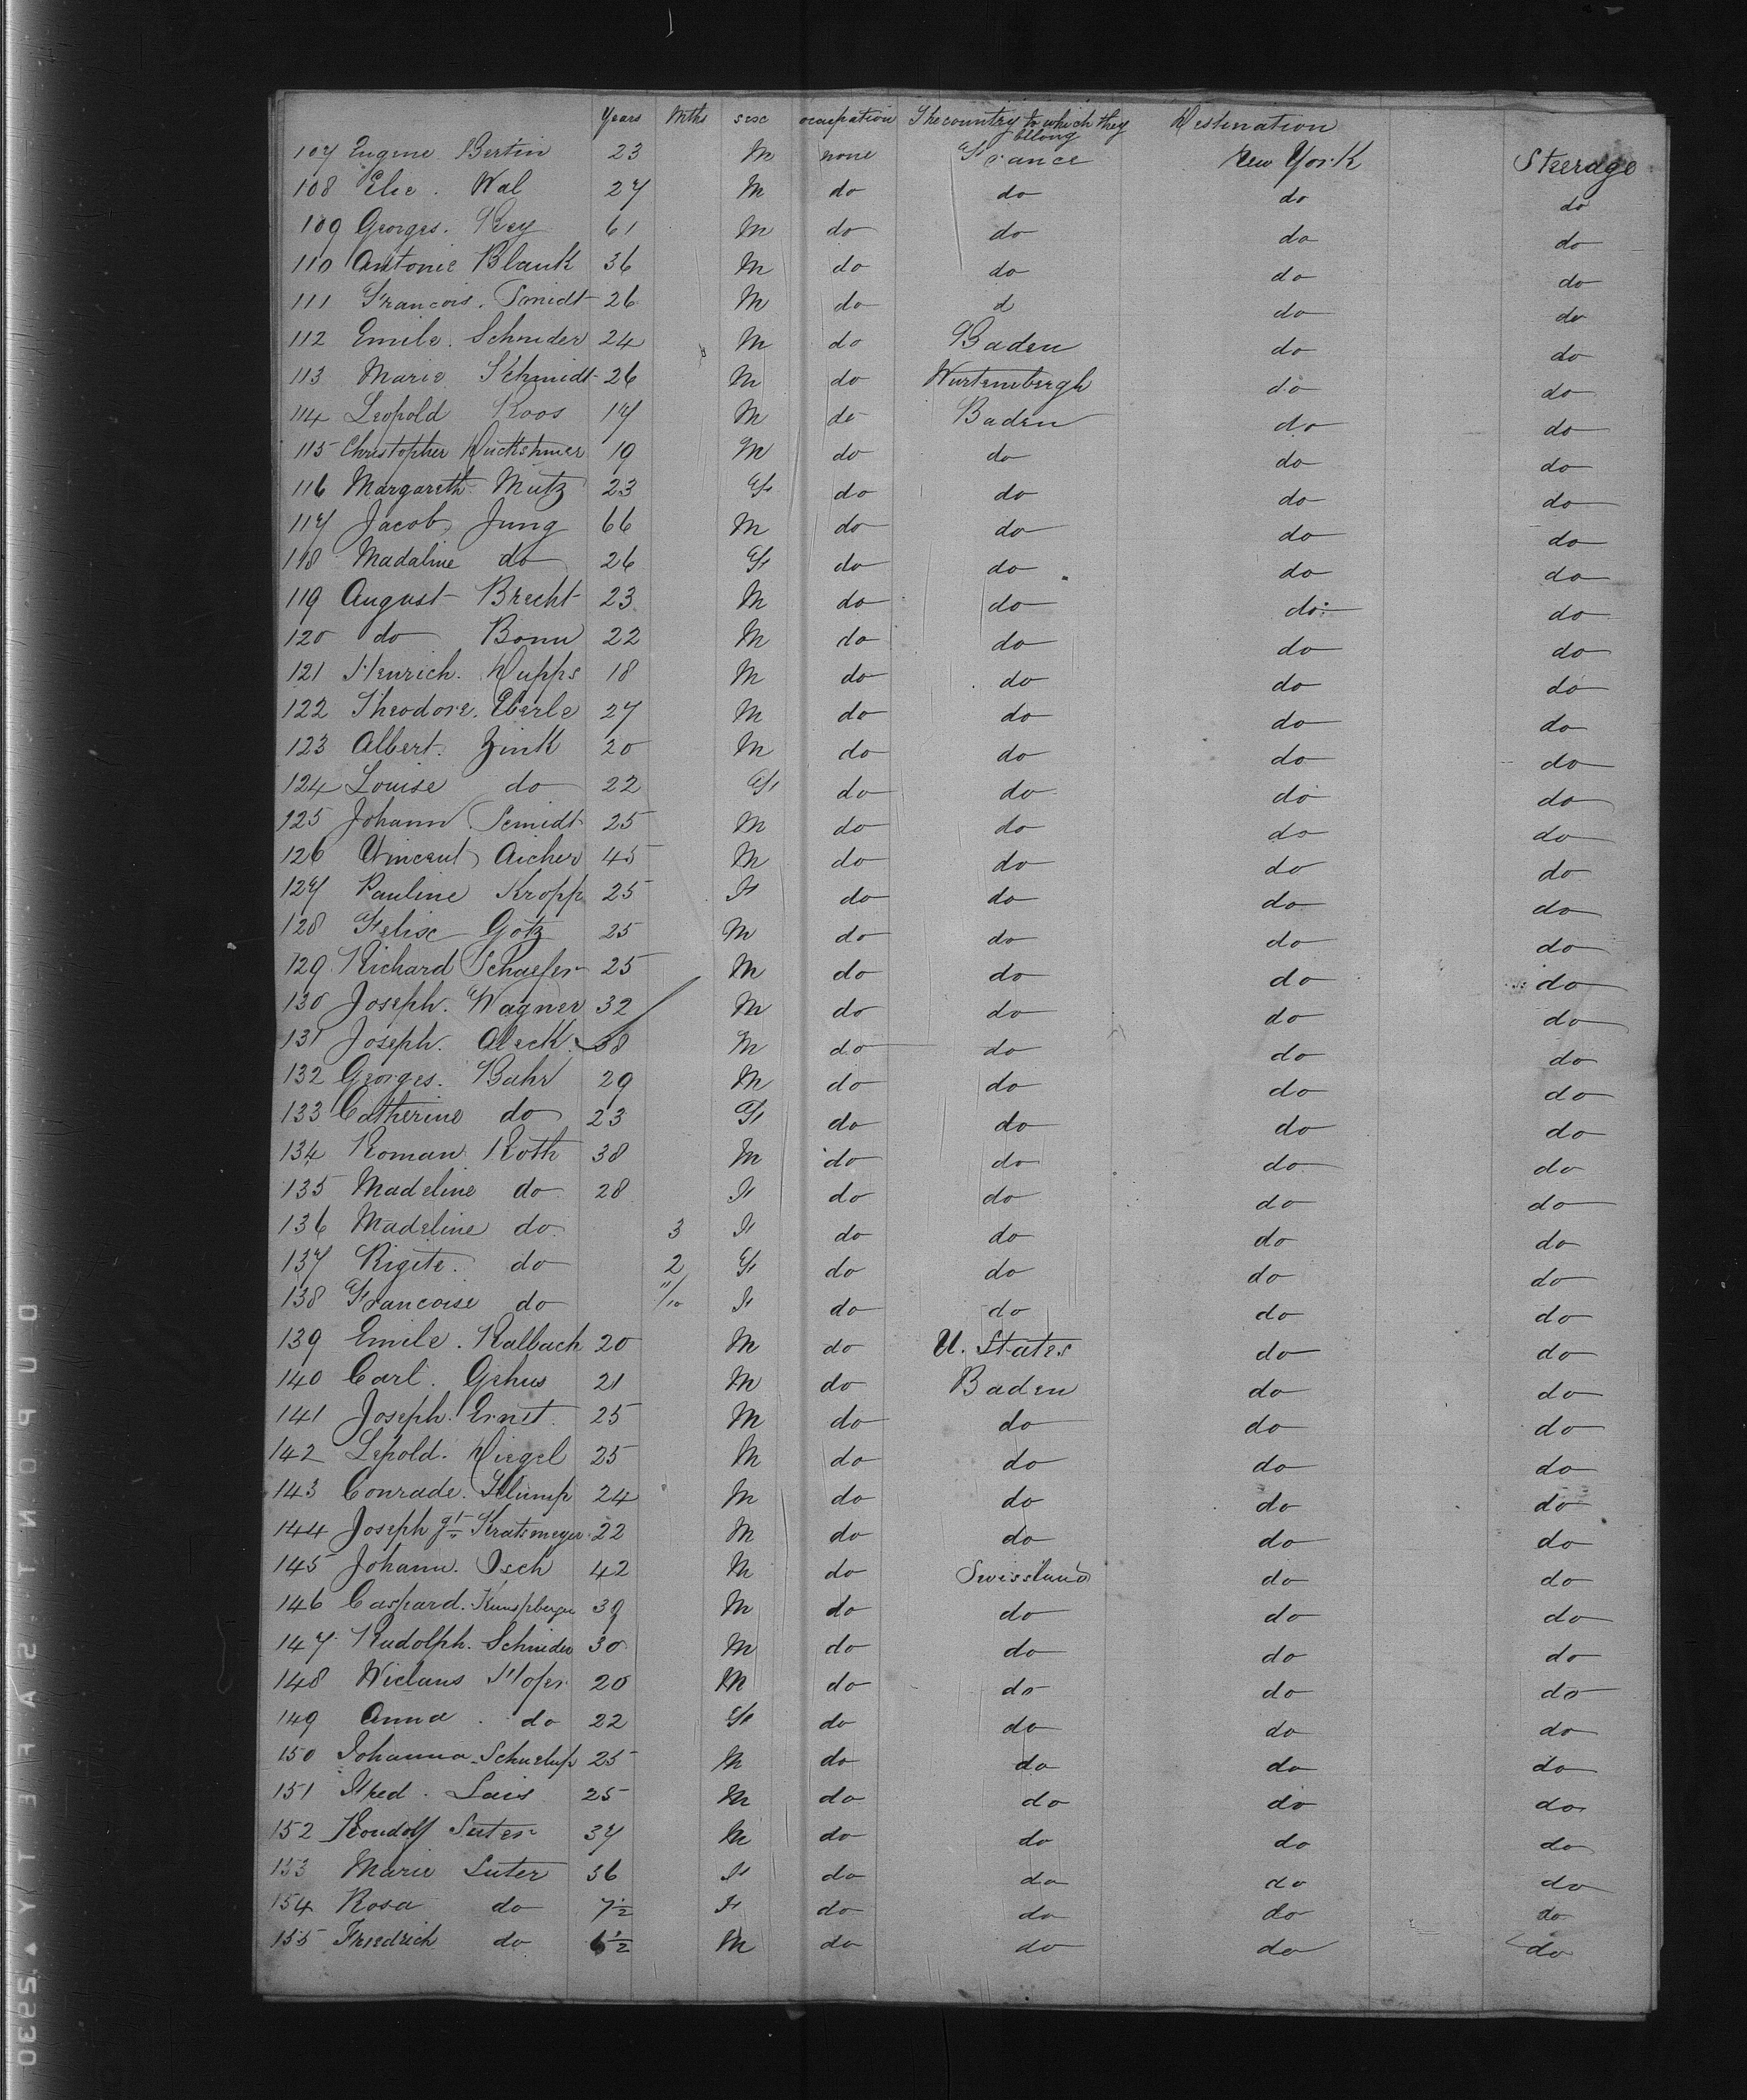 Years Mths sex occupation The country to which they bellong Destination
107 Eugene Bertin 23 M none France New York Steerage
108 Elie . Wal 27 M do do do do
109 Georges. Rey 61 M do do do do
110 Antonie Blank 36 M do do do do
111 Francois. Smidt 26 M do d do do
112 Emile. Schnider 24 M do Baden do do
113 Marie Schmidt 26 M do Wurtembergh do do
114 Leopold Roos 17 M do Baden do do
115 Christopher 19 M do do do do
116 Margareth Mutz 23 F do do do do
117 Jacob Jung 66 M do do do do
118 Madaline do 26 F do do do do
119 August Brecht 23 M do do do do
120 do Bonn 22 M do do do do
121 Henrich. Dupps 18 M do do do do
122 Theodore. Eberle 27 M do do do do
123 Albert. Zink 20 M do do do do
124 Louise do 22 F do do do do
125 Johann Scmidt 25 M do do do do
126 Vincent Aicher 45 M do do do do
127 Pauline Kropp 25 F do do do do
128 Felix Götz 25 M do do do do
129 Richard Schaefer 25 M do do do do
130 Joseph. Wagner 32 M do do do do
131 Joseph. Aleck 38 M do do do do
132 Georges. Bahr 29 M do do do do
133 Catherine do 23 F do do do do
134 Roman Roth 38 M do do do do
135 Madeline do 28 F do do do do
136 Madeline do 3 F do do do do
137 Rigite. do 2 F do do do do
138 Francoise do 11/10 F do do do do
139 Emile. Kalbach 20 M do U. States do do
140 Carl. Gehus 21 M do Baden do do
141 Joseph. Ernst. 25 M do do do do
142 Lepold. Diegel 25 M do do do do
143 Conrade. Klump 24 M do do do do
144 Joseph Kratsmeyer 22 M do do do do
145 Johann. Osch 42 M do Swissland do do
146 Caspard. 39 M do do do do
147 Rudolph. Schnider 30 M do do do do
148 Niclaus Hofer 20 M do do do do
149 Anna . do 22 F do do do do
150 Johanna 25 M do do do do
151 Fred . Lais 25 M do do do do
152 Roudolf Suter 37 M do do do do
153 Marie Suter 36 F do do do do
154 Rosa do 7½ F do do do do
155 Friedrich do 6½ M do do do do
DUPONT: SAFETY ▲ 2530